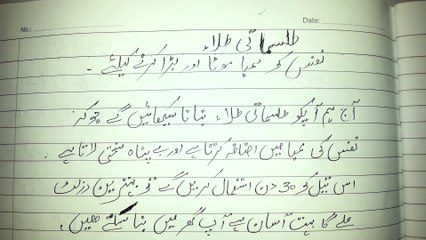 No:
Date:
طلسماتی طلاء
نفس کو لمبا موٹا اور بڑا کرنے کیلئے ۔
آج ہم آپکو طلسماتی طلاء بنانا سیکھائیں گے جو کہ
نفس کی لمبا میں اضافہ کرتا ہے اور بے پناہ سختی لاتا ہے ۔
اس تیل کو 30 دن استعمال کریں گے تو بہترین رزلٹ
ملے گا بہت آسان ہے آپ گھر میں بنا سکتے ھیں ۔